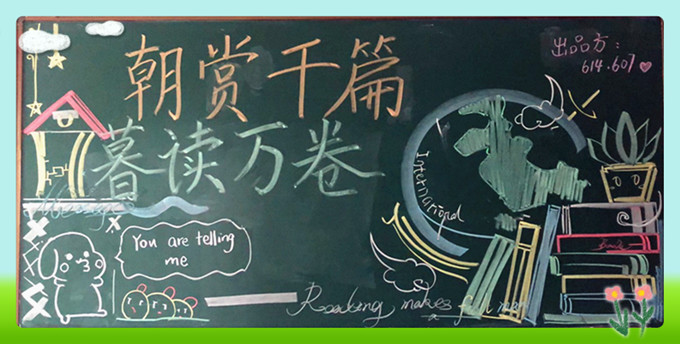 朝赏千篇
暮读万卷
出品方：
614.607
International
You are telling
me
Reading makes a full man